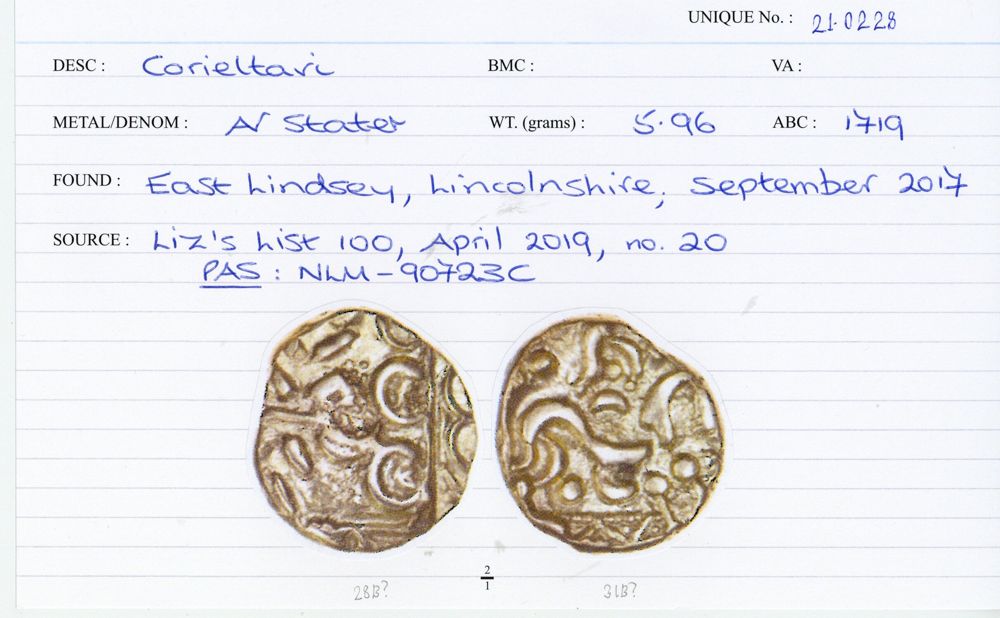 UNIQUE No. : 21.0228
DESC : Corieltavi BMC : VA :
METAL/DENOM : AV Stater WT. (grams) : 5.96 ABC : 1719
FOUND : East Lindsey, Lincolnshire, September 2017
SOURCE : Liz's List 100, April 2019, no. 20
PAS : NLM-90723C
2
1
28B? 31B?